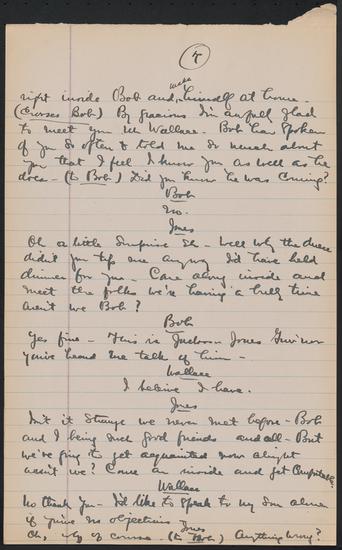 4
make
right inside Bob and himself at home.
(Crosses Bob) By gracious I'm awfully glad
to meet you Mr Wallace. Bob has spoken
of you so often & told me so much about
you that I feel I know you as well as he
does - (to Bob) Did you know he was coming?
Bob
No.
Jones
Oh a little surprise eh - Well why the deuce
didn't you tip me anyway I'd have held
dinner for you - Come along inside and
meet the folks we're having a bully time
aren't we Bob?
Bob
Yes fine - This is Jackson Jones Guv'nor
you've heard me talk of him -
Wallace
I believe I have.
Jones
Isn't it strange we never met before - Bob
and I being such good friends and all - But
we're going to get acquainted now alright
aren't we? Come on inside and get
Wallace
No thank you - I'd like to speak to my son alone
if you've no objections
Jones
Oh, why of course - (to Bob) Anything wrong?